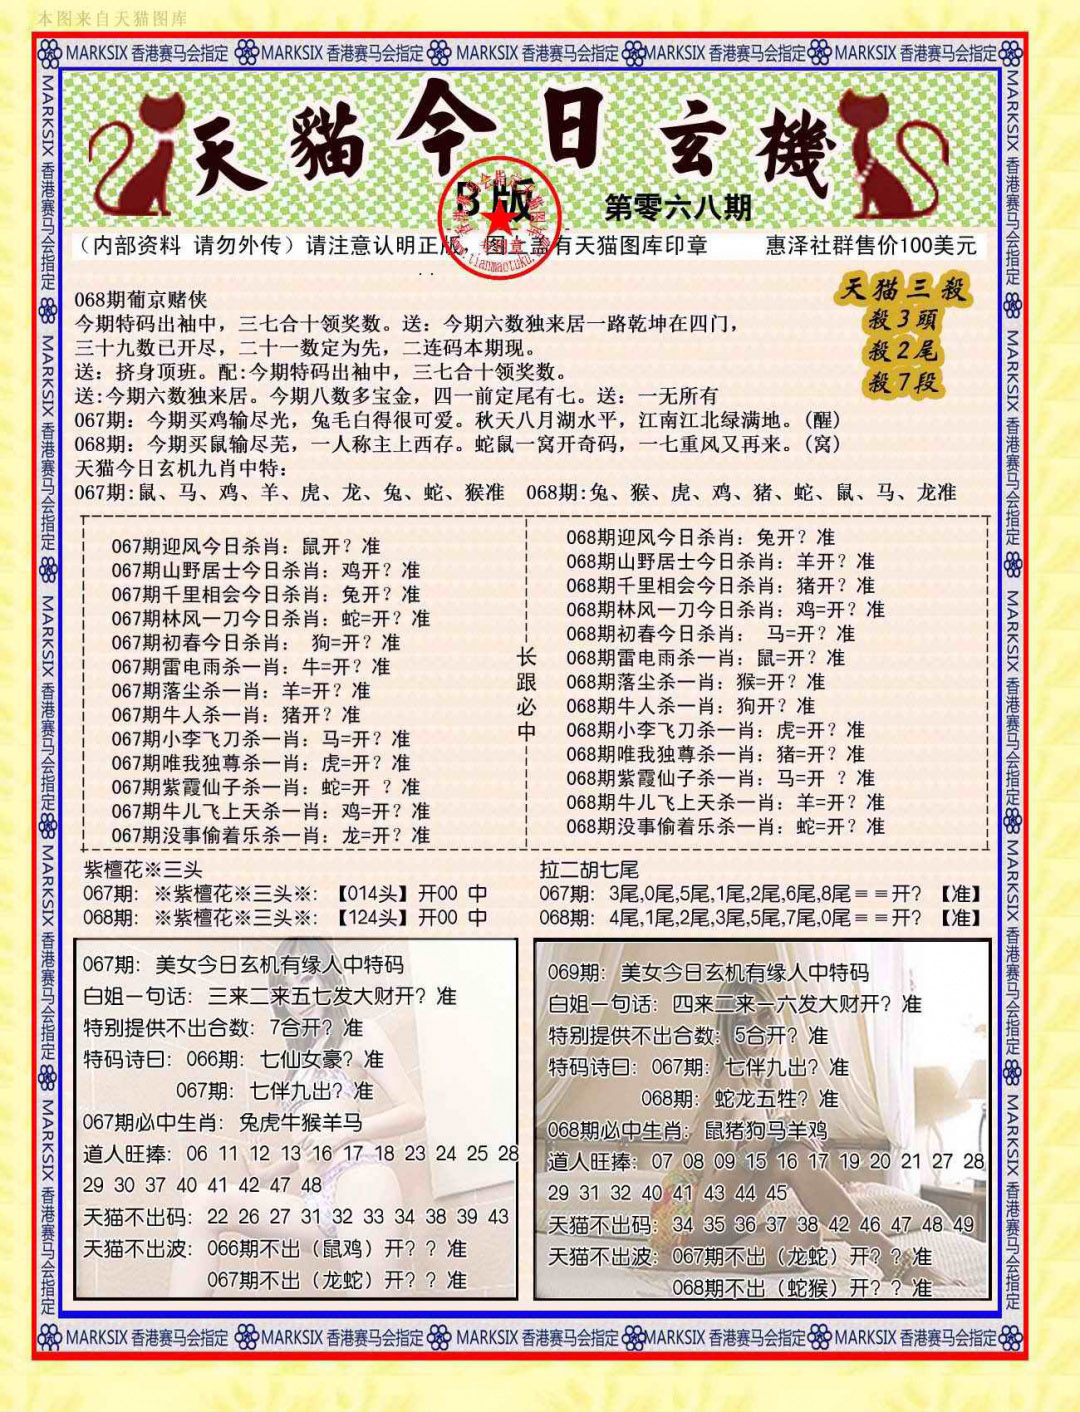 本图来自天猫图库
MARKSIX 香港赛马会指定 MARKSIX 香港赛马会指定 MARKSIX 香港赛马会指定 MARKSIX 香港赛马会指定 MARKSIX 香港赛马会指定
MARKSIX 香港赛马会指定 MARKSIX 香港赛马会指定 MARKSIX 香港赛马会指定 MARKSIX 香港赛马会指定 MARKSIX 香港赛马会指定
天貓今日玄機
B版
第零六八期
(内部资料 请勿外传)请注意认明正版,图上盖有天猫图库印章 惠泽社群售价100美元
www.tianmaotuku.com
天猫三殺
殺3頭
殺2尾
殺7段
068期葡京赌侠
今期特码出袖中，三七合十领奖数。送：今期六数独来居一路乾坤在四门，
三十九数已开尽，二十一数定为先，二连码本期现。
送：挤身顶班。配:今期特码出袖中，三七合十领奖数。
送:今期六数独来居。今期八数多宝金，四一前定尾有七。送：一无所有
067期：今期买鸡输尽光，兔毛白得很可爱。秋天八月湖水平，江南江北绿满地。(醒)
068期：今期买鼠输尽芜，一人称主上西存。蛇鼠一窝开奇码，一七重风又再来。(窝)
天猫今日玄机九肖中特：
067期:鼠、马、鸡、羊、虎、龙、兔、蛇、猴准 068期:兔、猴、虎、鸡、猪、蛇、鼠、马、龙准
067期迎风今日杀肖：鼠开？准
067期山野居士今日杀肖：鸡开？准
067期千里相会今日杀肖：兔开？准
067期林风一刀今日杀肖：蛇=开？准
067期初春今日杀肖： 狗=开？准
067期雷电雨杀一肖：牛=开？准
067期落尘杀一肖：羊=开？准
067期牛人杀一肖：猪开？准
067期小李飞刀杀一肖：马=开？准
067期唯我独尊杀一肖：虎=开？准
067期紫霞仙子杀一肖：蛇=开 ？准
067期牛儿飞上天杀一肖：鸡=开？准
067期没事偷着乐杀一肖：龙=开？准
长跟必中
068期迎风今日杀肖：兔开？准
068期山野居士今日杀肖：羊开？准
068期千里相会今日杀肖：猪开？准
068期林风一刀今日杀肖：鸡=开？准
068期初春今日杀肖： 马=开？准
068期雷电雨杀一肖：鼠=开？准
068期落尘杀一肖：猴=开？准
068期牛人杀一肖：狗开？准
068期小李飞刀杀一肖：虎=开？准
068期唯我独尊杀一肖：猪=开？准
068期紫霞仙子杀一肖：马=开 ？准
068期牛儿飞上天杀一肖：羊=开？准
068期没事偷着乐杀一肖：蛇=开？准
紫檀花※三头
067期：※紫檀花※三头※：【014头】开00 中
068期：※紫檀花※三头※：【124头】开00 中
拉二胡七尾
067期：3尾,0尾,5尾,1尾,2尾,6尾,8尾==开？【准】
068期：4尾,1尾,2尾,3尾,5尾,7尾,0尾==开？【准】
067期：美女今日玄机有缘人中特码
白姐一句话：三来二来五七发大财开？准
特别提供不出合数：7合开？准
特码诗曰：066期：七仙女豪？准
067期：七伴九出？准
067期必中生肖：兔虎牛猴羊马
道人旺捧：06 11 12 13 16 17 18 23 24 25 28
29 30 37 40 41 42 47 48
天猫不出码：22 26 27 31 32 33 34 38 39 43
天猫不出波：066期不出（鼠鸡）开？？准
067期不出（龙蛇）开？？准
069期：美女今日玄机有缘人中特码
白姐一句话：四来二来一六发大财开？准
特别提供不出合数：5合开？准
特码诗曰：067期：七伴九出？准
068期：蛇龙五牲？准
068期必中生肖：鼠猪狗马羊鸡
道人旺捧：07 08 09 15 16 17 19 20 21 27 28
29 31 32 40 41 43 44 45
天猫不出码：34 35 36 37 38 42 46 47 48 49
天猫不出波：067期不出（龙蛇）开？？准
068期不出（蛇猴）开？？准
MARKSIX 香港赛马会指定 MARKSIX 香港赛马会指定 MARKSIX 香港赛马会指定 MARKSIX 香港赛马会指定 MARKSIX 香港赛马会指定
MARKSIX 香港赛马会指定 MARKSIX 香港赛马会指定 MARKSIX 香港赛马会指定 MARKSIX 香港赛马会指定 MARKSIX 香港赛马会指定